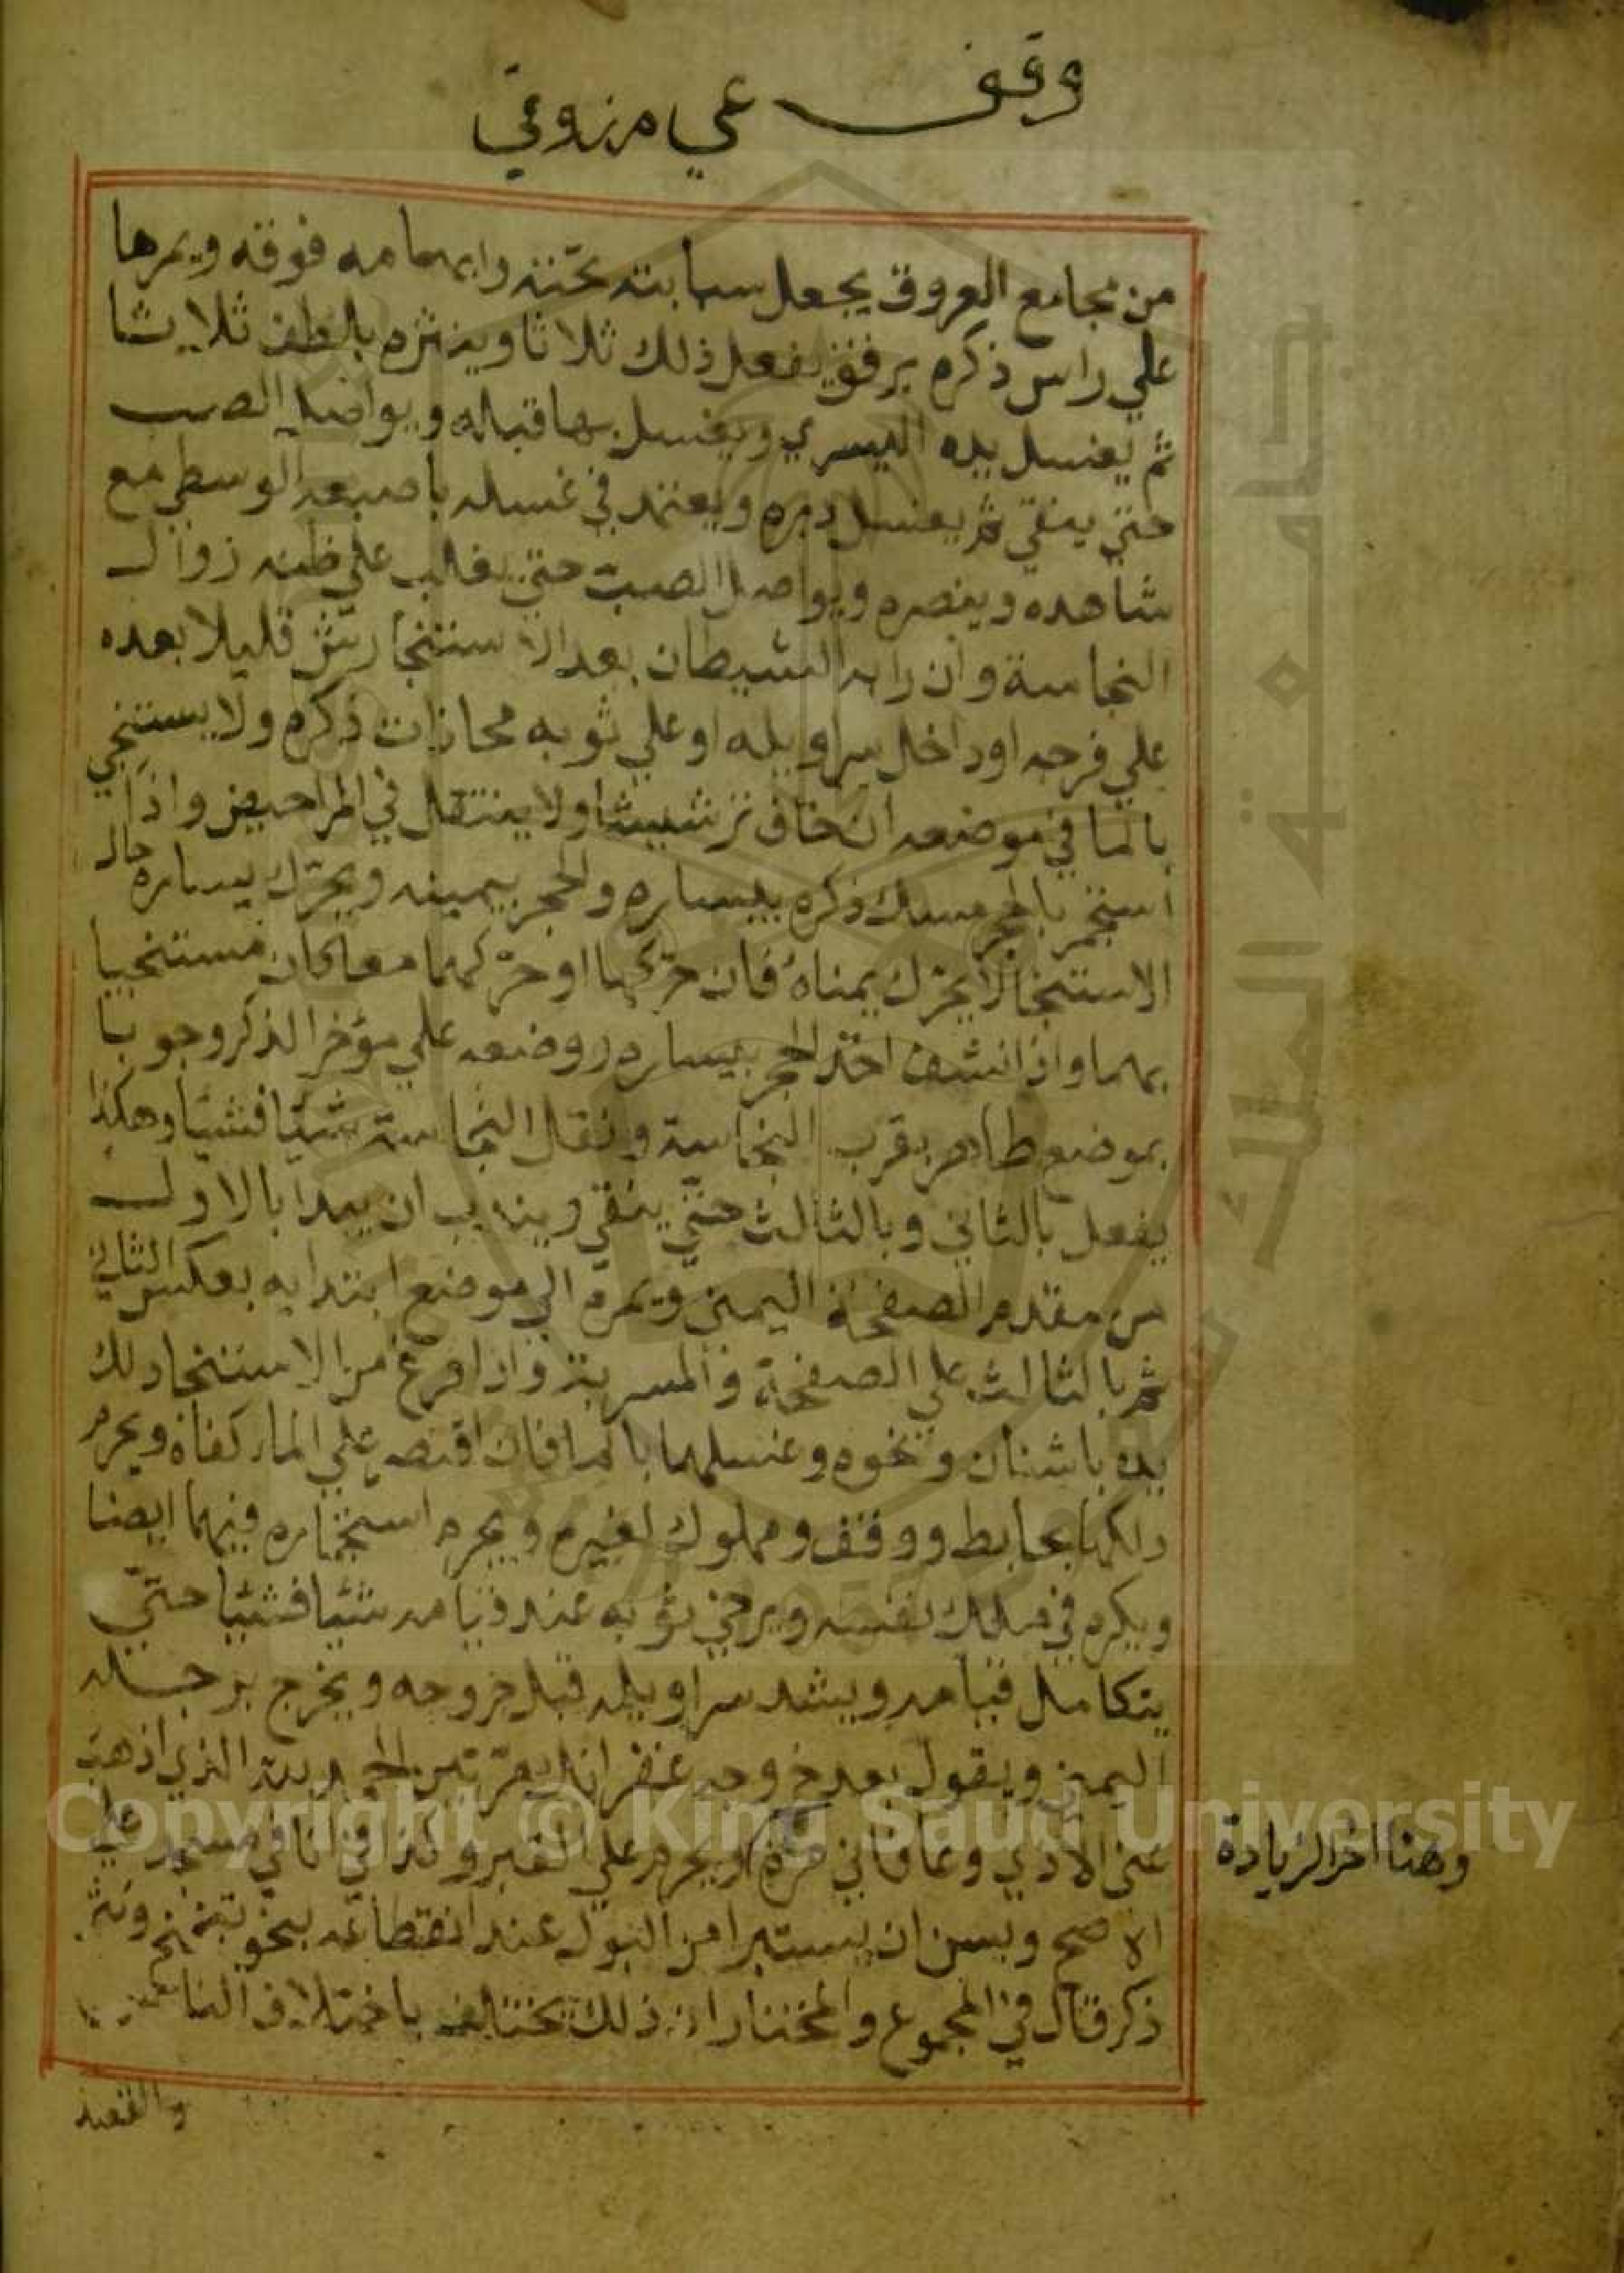 وقف علي مرزوقي
من مجامع العروق يجعل سبابته تحته وابهامه فوقه ويمرها
علي راس ذكره برفق يفعل ذلك ثلاثا وينثره بالطف ثلاثا
ثم يغسل يده اليسري ويغسل بها قباله ويواصل الصب
حتي ينقي ثم يغسل دبره ويعتمد في غسله باصبعه الوسطي مع
شاهده وبنصره ويواصل الصب حتي يغلب علي ظنه زوال
النجاسة وان رابه الشيطان بعد الاستنجا رش قليلا بعده
علي فرجه او داخل سراويله او علي ثوبه محازات ذكره ولا يستنجي
بالما في موضعه ان خاف ترشيشا ولا ينتقل في المراحيض واذا
استجمر بالحجر مسك ذكره بيساره والحجر بيمينه ويحرك يساره حال
الاستنجا لا يحرك يمناه فان حركها او حركهما معا كان مستنجيا
بهما واذا نشف اخذ الحجر بيساره ووضعه علي مؤخر الذكر وجوبا
بموضع طاهر بقرب النجاسة ونقل النجاسة شيا فشيا وهكذا
يفعل بالثاني وبالثالث حتي ينقي ويندب ان يبدا بالاول
من مقدم الصفحة اليمني ويمره الي موضع ابتدايه بعكس الثاني
ثم بالثالث علي الصفحة والمسربة واذا فرغ من الاستنجا دلك
يده باشنان ونحوه وغسلهما بالما فان اقتصر علي الماء كفاه ويحرم
دلكها بحايط ووقف ومملوك لغيره ويحرم استجماره فيهما ايضا
ويكره في ملك نفسه ويرخي ثوبه عند قيامه شيا فشيا حتي
يتكامل قيامه ويشد سراويله قبل خروجه ويخرج برجله
اليمني ويقول بعد خروجه غفرانك مرتين الحمد لله الذي اذهب
عني الاذي وعافاني مرة ويحرم علي القبر وكذا في انا في مسجد علي
الاصح ويسن ان يستبرا من البول عند انقطاعه بنحو تنحنح ونثر
ذكر قال في المجموع والمختار ان ذلك يختلف باختلاف الناس
والقصد
وهنا اخر الزيادة
جامعة الملك سعود
Copyright © King Saud University